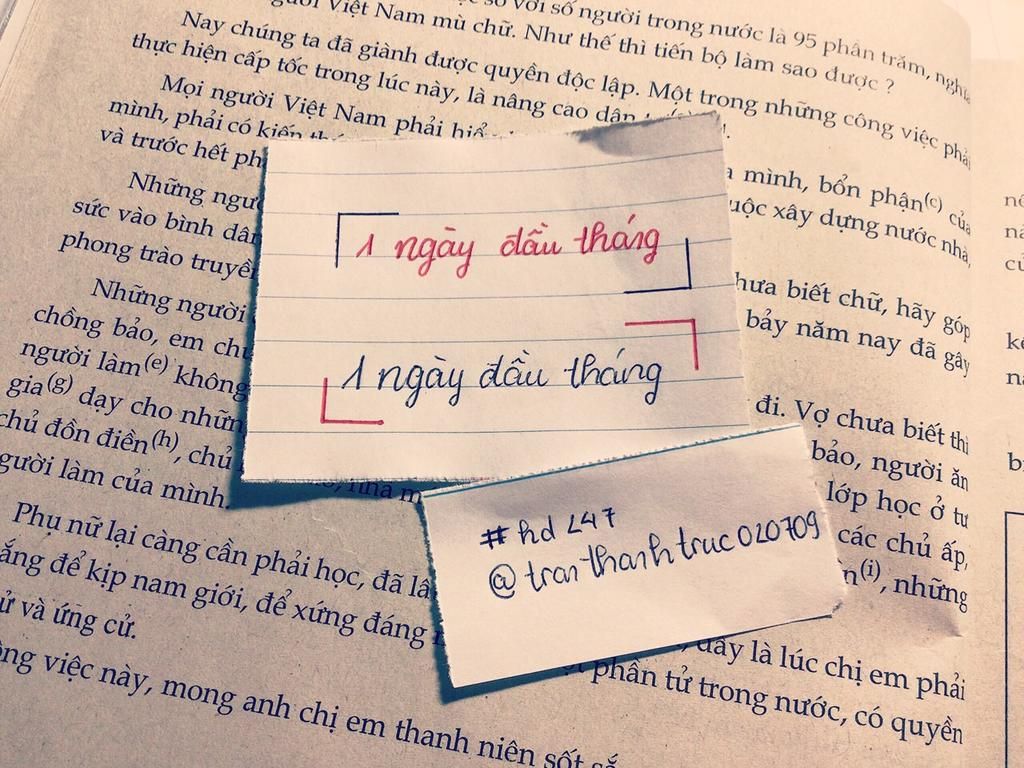 so với số người trong nước là 95 phần trăm, nghĩa
người Việt Nam mù chữ. Như thế thì tiến bộ làm sao được ?
Nay chúng ta đã giành được quyền độc lập. Một trong những công việc phải
thực hiện cấp tốc trong lúc này, là nâng cao dân
Mọi người Việt Nam phải hiểu
mình, bổn phận(c) của
mình, phải có kiến
uộc xây dựng nước nhà,
và trước hết ph
Những ngư
hưa biết chữ, hãy góp
sức vào bình dân
bảy năm nay đã gây
phong trào truyề
Những người
đi. Vợ chưa biết thì
chồng bảo, em chư
bảo, người ăn
người làm(e) không
lớp học ở tư
gia(g) dạy cho những
các chủ ấp,
chủ đồn điền(h), chủ
n(i), những
gười làm của mình.
Phụ nữ lại càng cần phải học, đã lâ
đây là lúc chị em phải
ắng để kịp nam giới, để xứng đáng
phần tử trong nước, có quyền
ử và ứng cử.
ông việc này, mong anh chị em thanh niên sốt sắ
1 ngày đầu tháng
1 ngày đầu tháng
#hd 247
@tranthanhtruc020709